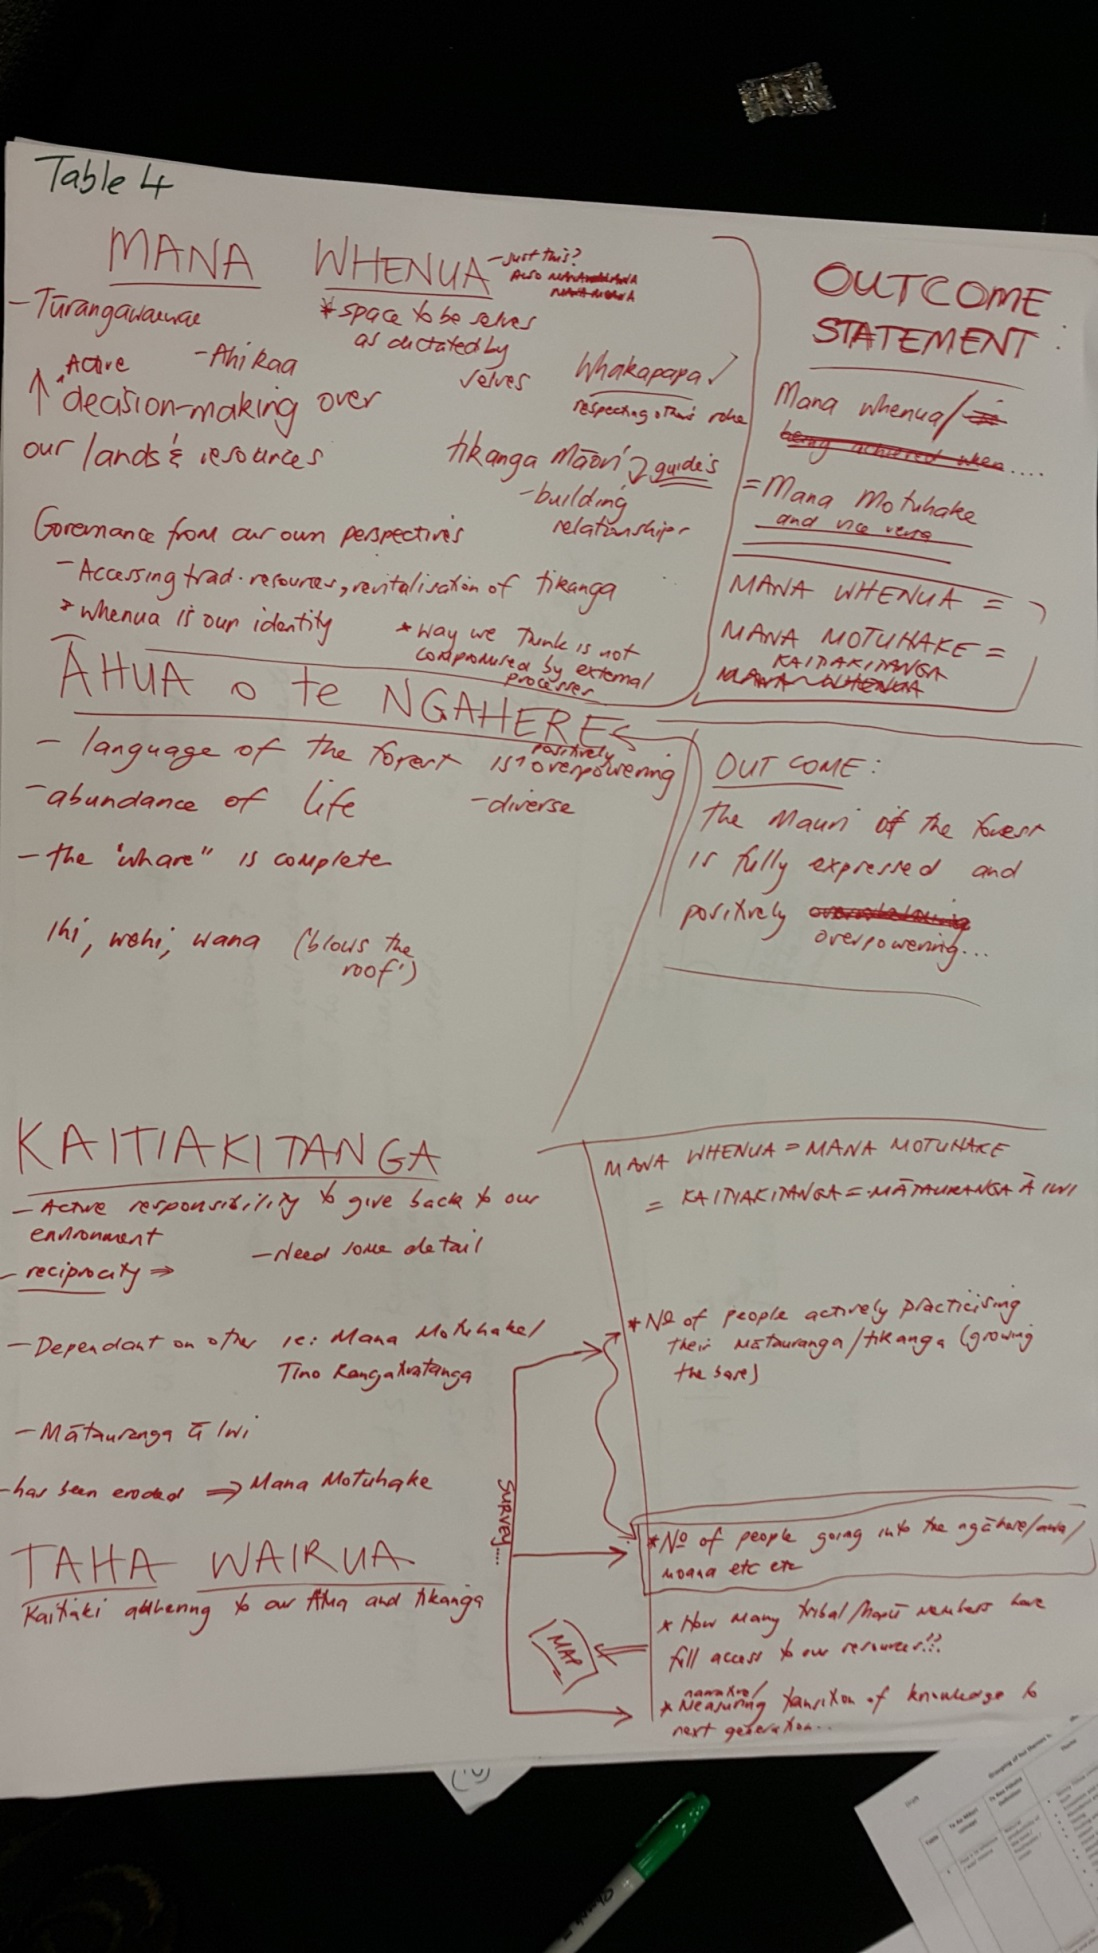 Table 4
MANA WHENUA
- just this?
Also
- Tūrangawaewae
* space to be selves
as dictated by
selves
- Ahi Kaa
↑ Active
decision-making over
our lands & resources
Whakapapa ✓
respecting others role
tikanga Māori guides
- building
relationships
Governance from our own perspectives
- Accessing trad. resources, revitalisation of tikanga
* whenua is our identity
* Way we think is not
compromised by external
processes
OUTCOME
STATEMENT:
Mana whenua/is
being achieved when....
= Mana Motuhake
and vice versa
MANA WHENUA =
MANA MOTUHAKE =
KAITIAKITANGA
MANA WHENUA
ĀHUA o te NGAHERE
- language of the forest is positively overpowering
- abundance of life
- diverse
- the "whare" is complete
Ihi, wehi, wana ('blows the
roof')
OUTCOME:
The Mauri of the forest
is fully expressed and
positively
overpowering...
KAITIAKITANGA
- Active responsibility to give back to our
environment
- Need some detail
- reciprocity ⇒
- Dependant on other ie: Mana Motuhake/
Tino Rangatiratanga
- Mātauranga ā Iwi
- has been eroded ⇒ Mana Motuhake
MANA WHENUA = MANA MOTUHAKE
= KAITIAKITANGA = MĀTAURANGA Ā IWI
* No of people actively practicising
their mātauranga/tikanga (growing
the base)
Survey...
* No of people going into the ngāhere/awa/
moana etc etc
* How many tribal/hapū members have
full access to our resources!!?
MAP
narrative/
* Measuring transition of knowledge to
next generation...
TAHA WAIRUA
Kaitiaki adhering to our Atua and tikanga